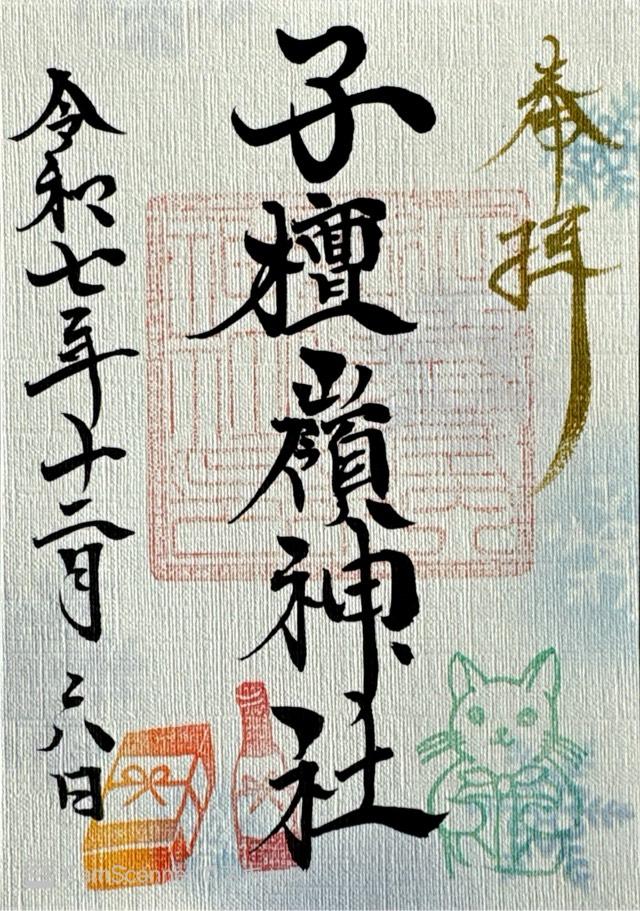 奉拝
子檀嶺神社
令和七年十二月二八日
CamScanner